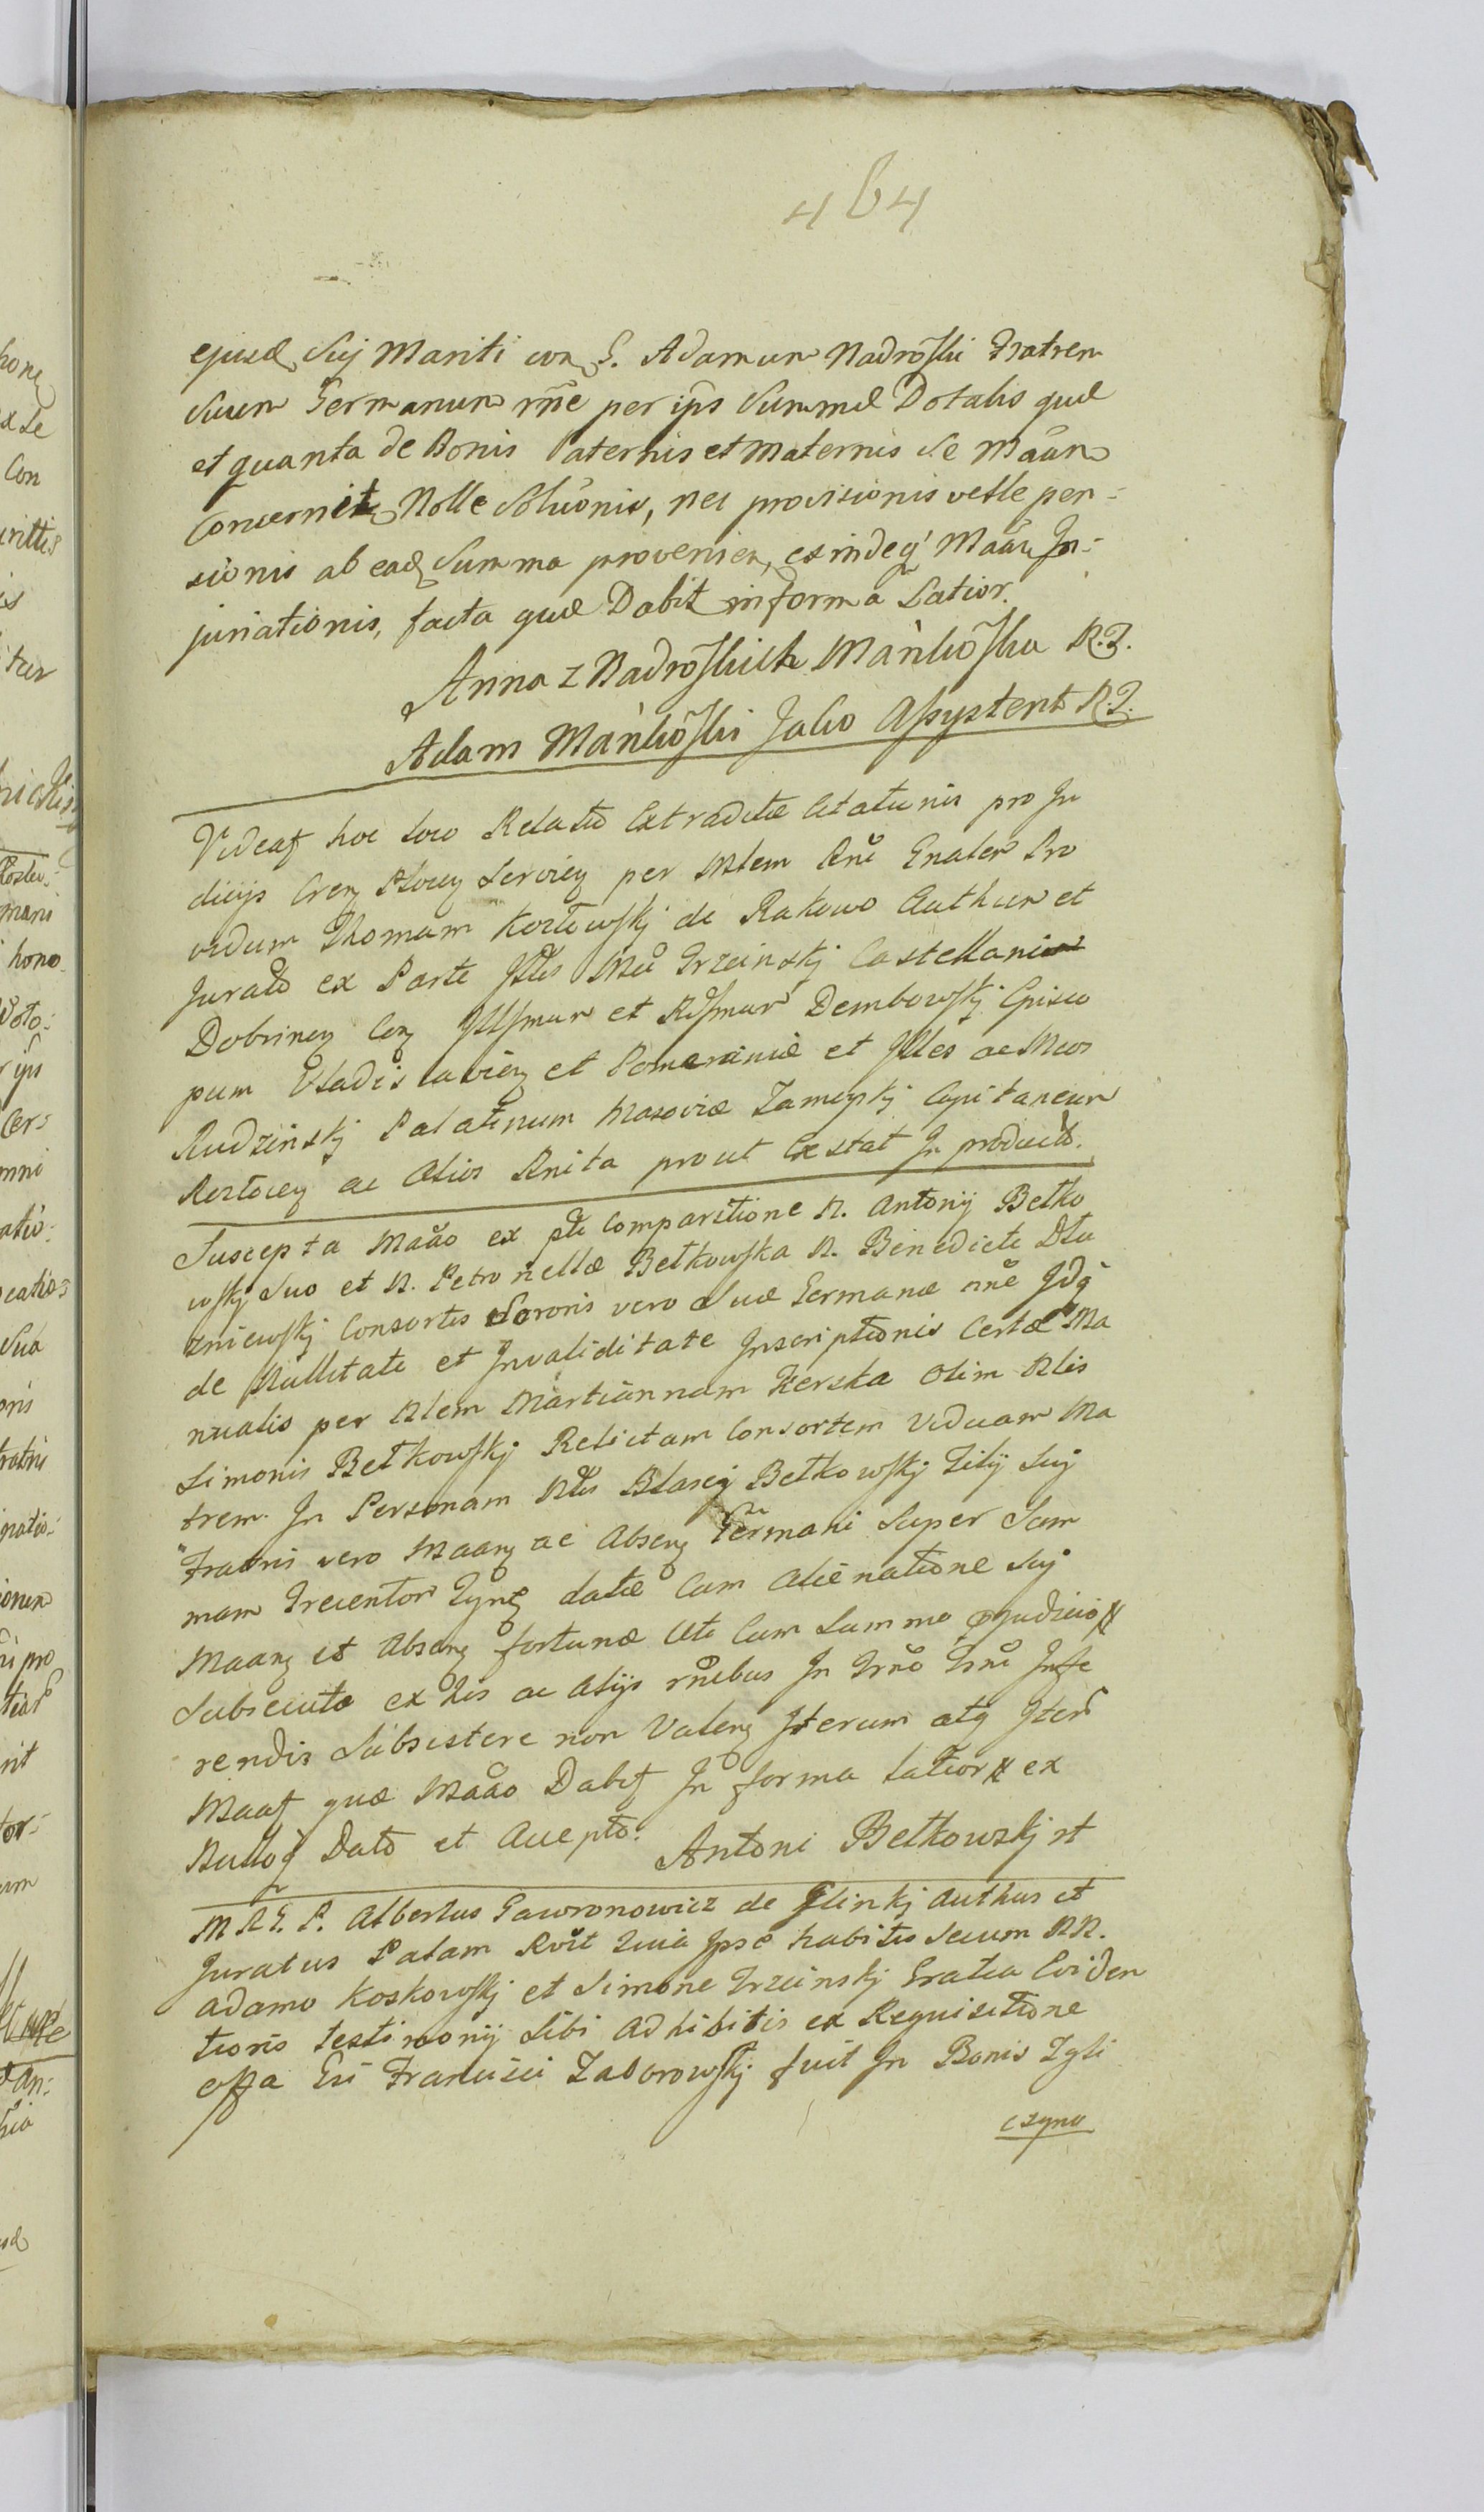 464
ejusd Sui Mariti con G. Adamum Nadroski Fratrem
Suum Germanum rñe per ips Summæ Dotalis quæ
et quanta de Bonis Paternis et Maternis Se Maãn
Concernit Nolle Solũonis, nec provisionis velle pen-
sionis ab ead Summa provenien, ex indeq Maãn In-
juriationis, facta quæ Dabit in forma Latior.
Anna z Nadroskich Mańkoska R.P.
Adam Mańkoski Jako Assystent R.P.
Videat hoc loco Relatio Extraditæ Citationis pro Ju
dicijs Cren Plocen Servien per Mlem Rni Gnalem Pro
vidum Thomam Kozłowskj de Rakowo Authen et
Jurato ex Parte Illis Mei Trzcinskj Castellani
Dobrinen Con Illsmum et Rdsmum Dembowskj Episco
pum Vladislavien et Pomeraniæ et Illes ac Mcos
Rudzinskj Palatinum Masoviæ Zamoyskj Capitaneum
Rostocen ac Alios Rnita prout Exstat In producto.
Suscepta Maão ex pte Comparitione N. Antonij Betko
wskj Suo et N. Petronellæ Betkowska N. Benedicti Dłu
zniewskj Consortis Sororis vero Suæ Germanæ nñe Idq
de Nullitate et Invaliditate Inscriptionis Certæ Ma
nualis per Nlem Mariannam Kerska Olim Nlis
Simonis Betkowskj Relictam Consortem Viduam Ma
trem. In Personam Nlis Blasej Betkowskj Filij Suj
Fratris vero Maang ac Absen Germani Super Sum
mam Trecentor Tynf datæ Cum Alienatione Suj
Maang et Absen fortunæ Uti Cum Summo pjudicio
Subsecuta ex his ac Alijs rñibus In Trño Trñi Infe
rendis Subsistere non Valeng Iterum atq Iter
Maat quæ Maão Dabit In forma latiori ex
Nulloq Dato et Accepto. Antoni Betkowskj st
M N G. P. Albertus Gawronowicz de Glinkj Authus et
Juratus Palam Rvit Quia Ipse habitis Secum NN.
Adamo Koskowskj et Simone Trzcinskj Gratia Eviden
tioris testimonij Sibi Adhibitis ex Requisitione
offa Gsi Francisci Zaborowskj fuit In Bonis Zgli
czyno